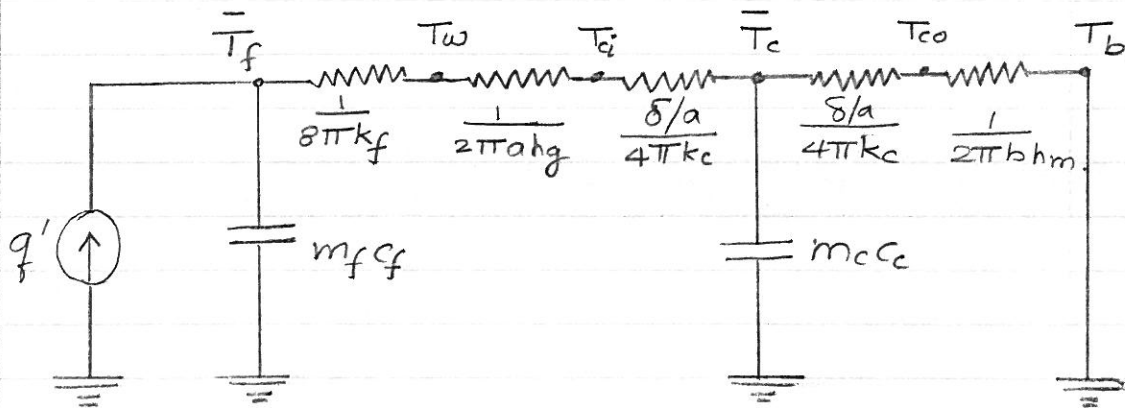 T̄f Tw Tci T̄c Tco Tb
1/8πkf 1/2πahg δ/a/4πkc δ/a/4πkc 1/2πbhm
q' mfcf mccc